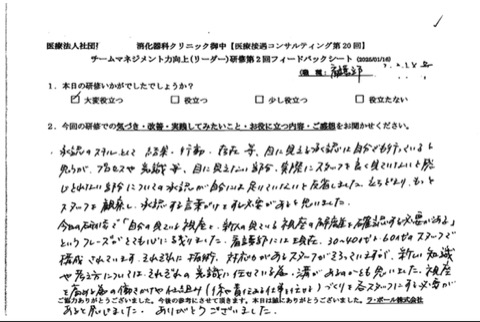 医療法人社団 消化器科クリニック御中【医療接遇コンサルティング第20回】
チームマネジメント力向上(リーダー)研修第2回フィードバックシート(2025/01/16)
(職種: 看護部
1. 本日の研修いかがでしたでしょうか?
☑大変役立つ □役立つ □少し役立つ □役立たない
2. 今回の研修での気づき・改善・実践してみたいこと・お役に立つ内容・ご感想をお聞かせください。
承認のスキルとして 結果、行動、存在 等、目に見える承認は 自分でも行っていると
思うが、プロセスや 意識 等、目に見えない部分、実際にスタッフを良く見ていないと感じ
とれない部分についての承認が自分には足りていないと反省しました。もっと
スタッフを観察し、承認する言葉がけをする必要があると思いました。
今回の研修で「自分の見ている視座と、新人の見ている視座の解離度を確認する必要がある」
というフレーズがとても心に残りました。看護部には現在、30〜40代と60代のスタッフで
構成されています。それぞれに技術、対応力があるスタッフがそろっていますが、新しい知識
や考え方については、それぞれの意識に任せている為、溝があるのかとも思いました。視座
を高める為の働きかけや仕組み(係や責任ある仕事を任せる)づくりを各スタッフにする必要が
ご協力ありがとうございました。今後の参考にさせて頂きます。本日は誠にありがとうございました。 ラ・ポール株式会社
あると感じました。ありがとうございました。